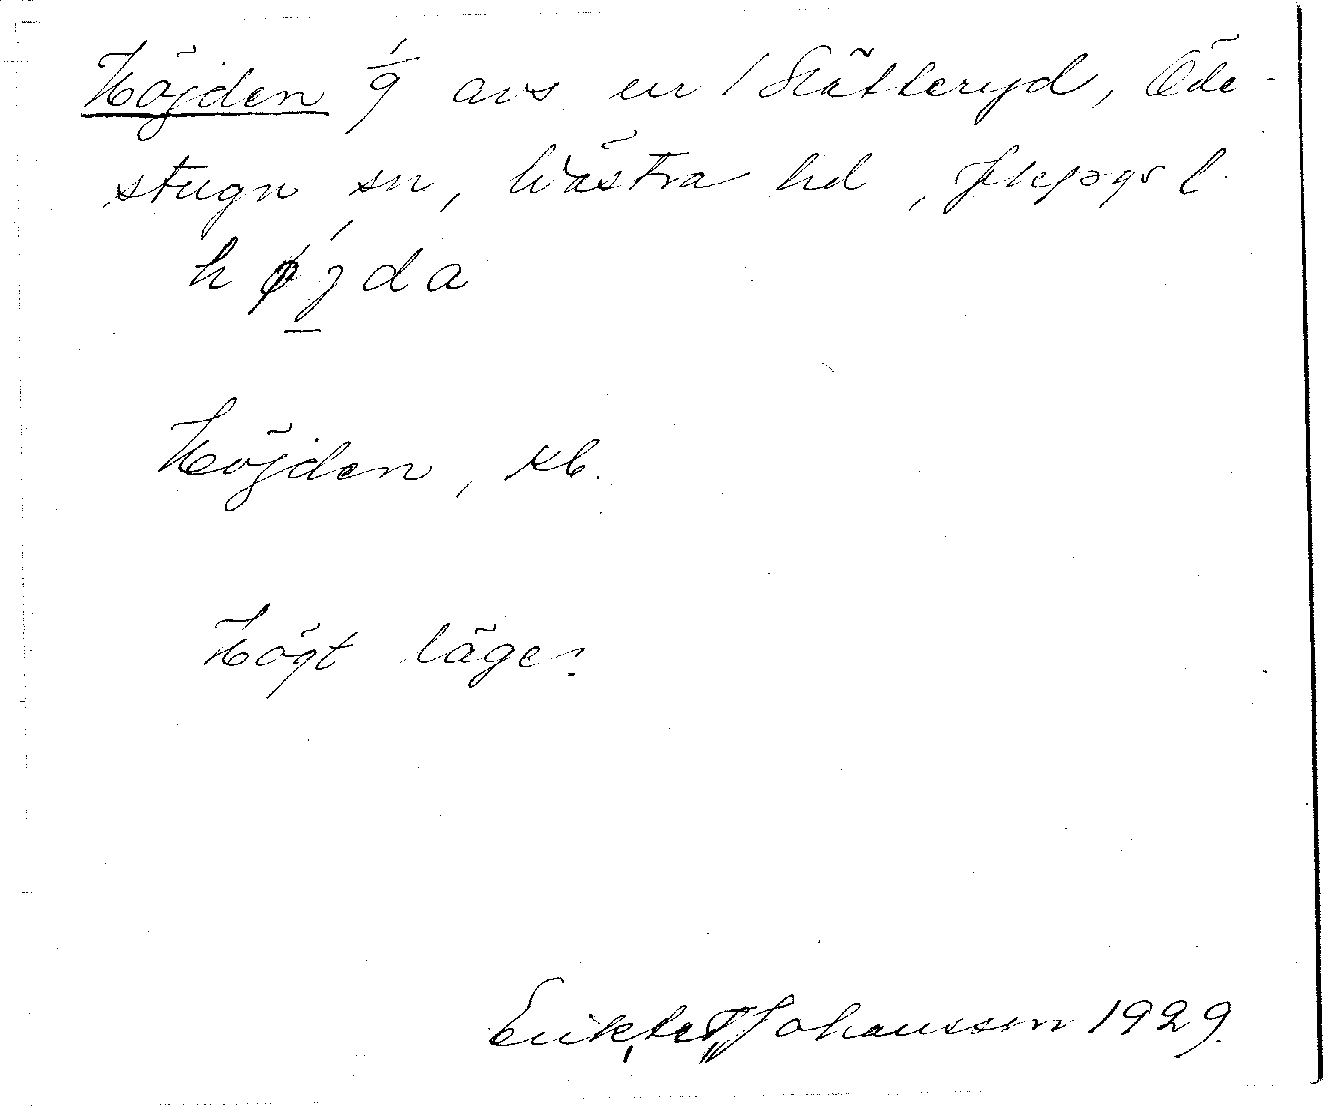 Höjden 1/9 avs en 1 Slätteryd, Öde-
stugu sn, Västra hd, Jkpgs l.
hø´jda
Höjden, kb.
Högt läge.
Johansson 1929.